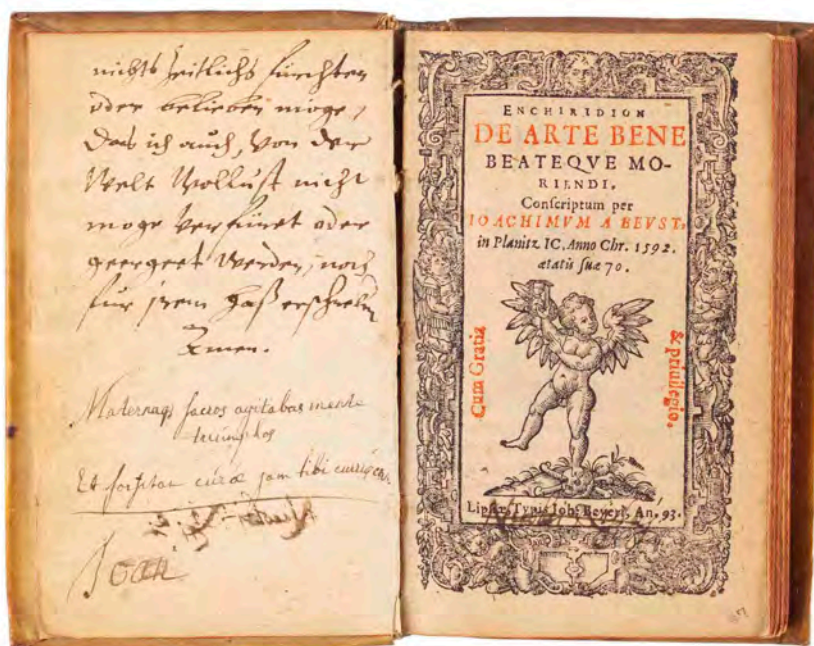 nichts Zeitlichs fürchten
oder belieben möge,
Das ich auch, von der
Welt Wollust nicht
moge verfüret oder
geergert werden, noch
für jrem Haß erschrecken
Amen.
Maternaq; sacros agitabas mente
triumphos
Et forsitan curæ jam tibi
ENCHIRIDION
DE ARTE BENE
BEATEQVE MO-
RIENDI.
Conſcriptum per
IOACHIMVM A BEVST,
in Planitz IC. Anno Chr. 1592.
ætatis ſuæ 70.
Cum Gratia
& priuilegio.
Lipſiæ, Typis Ioh: Beyeri, An. 93.